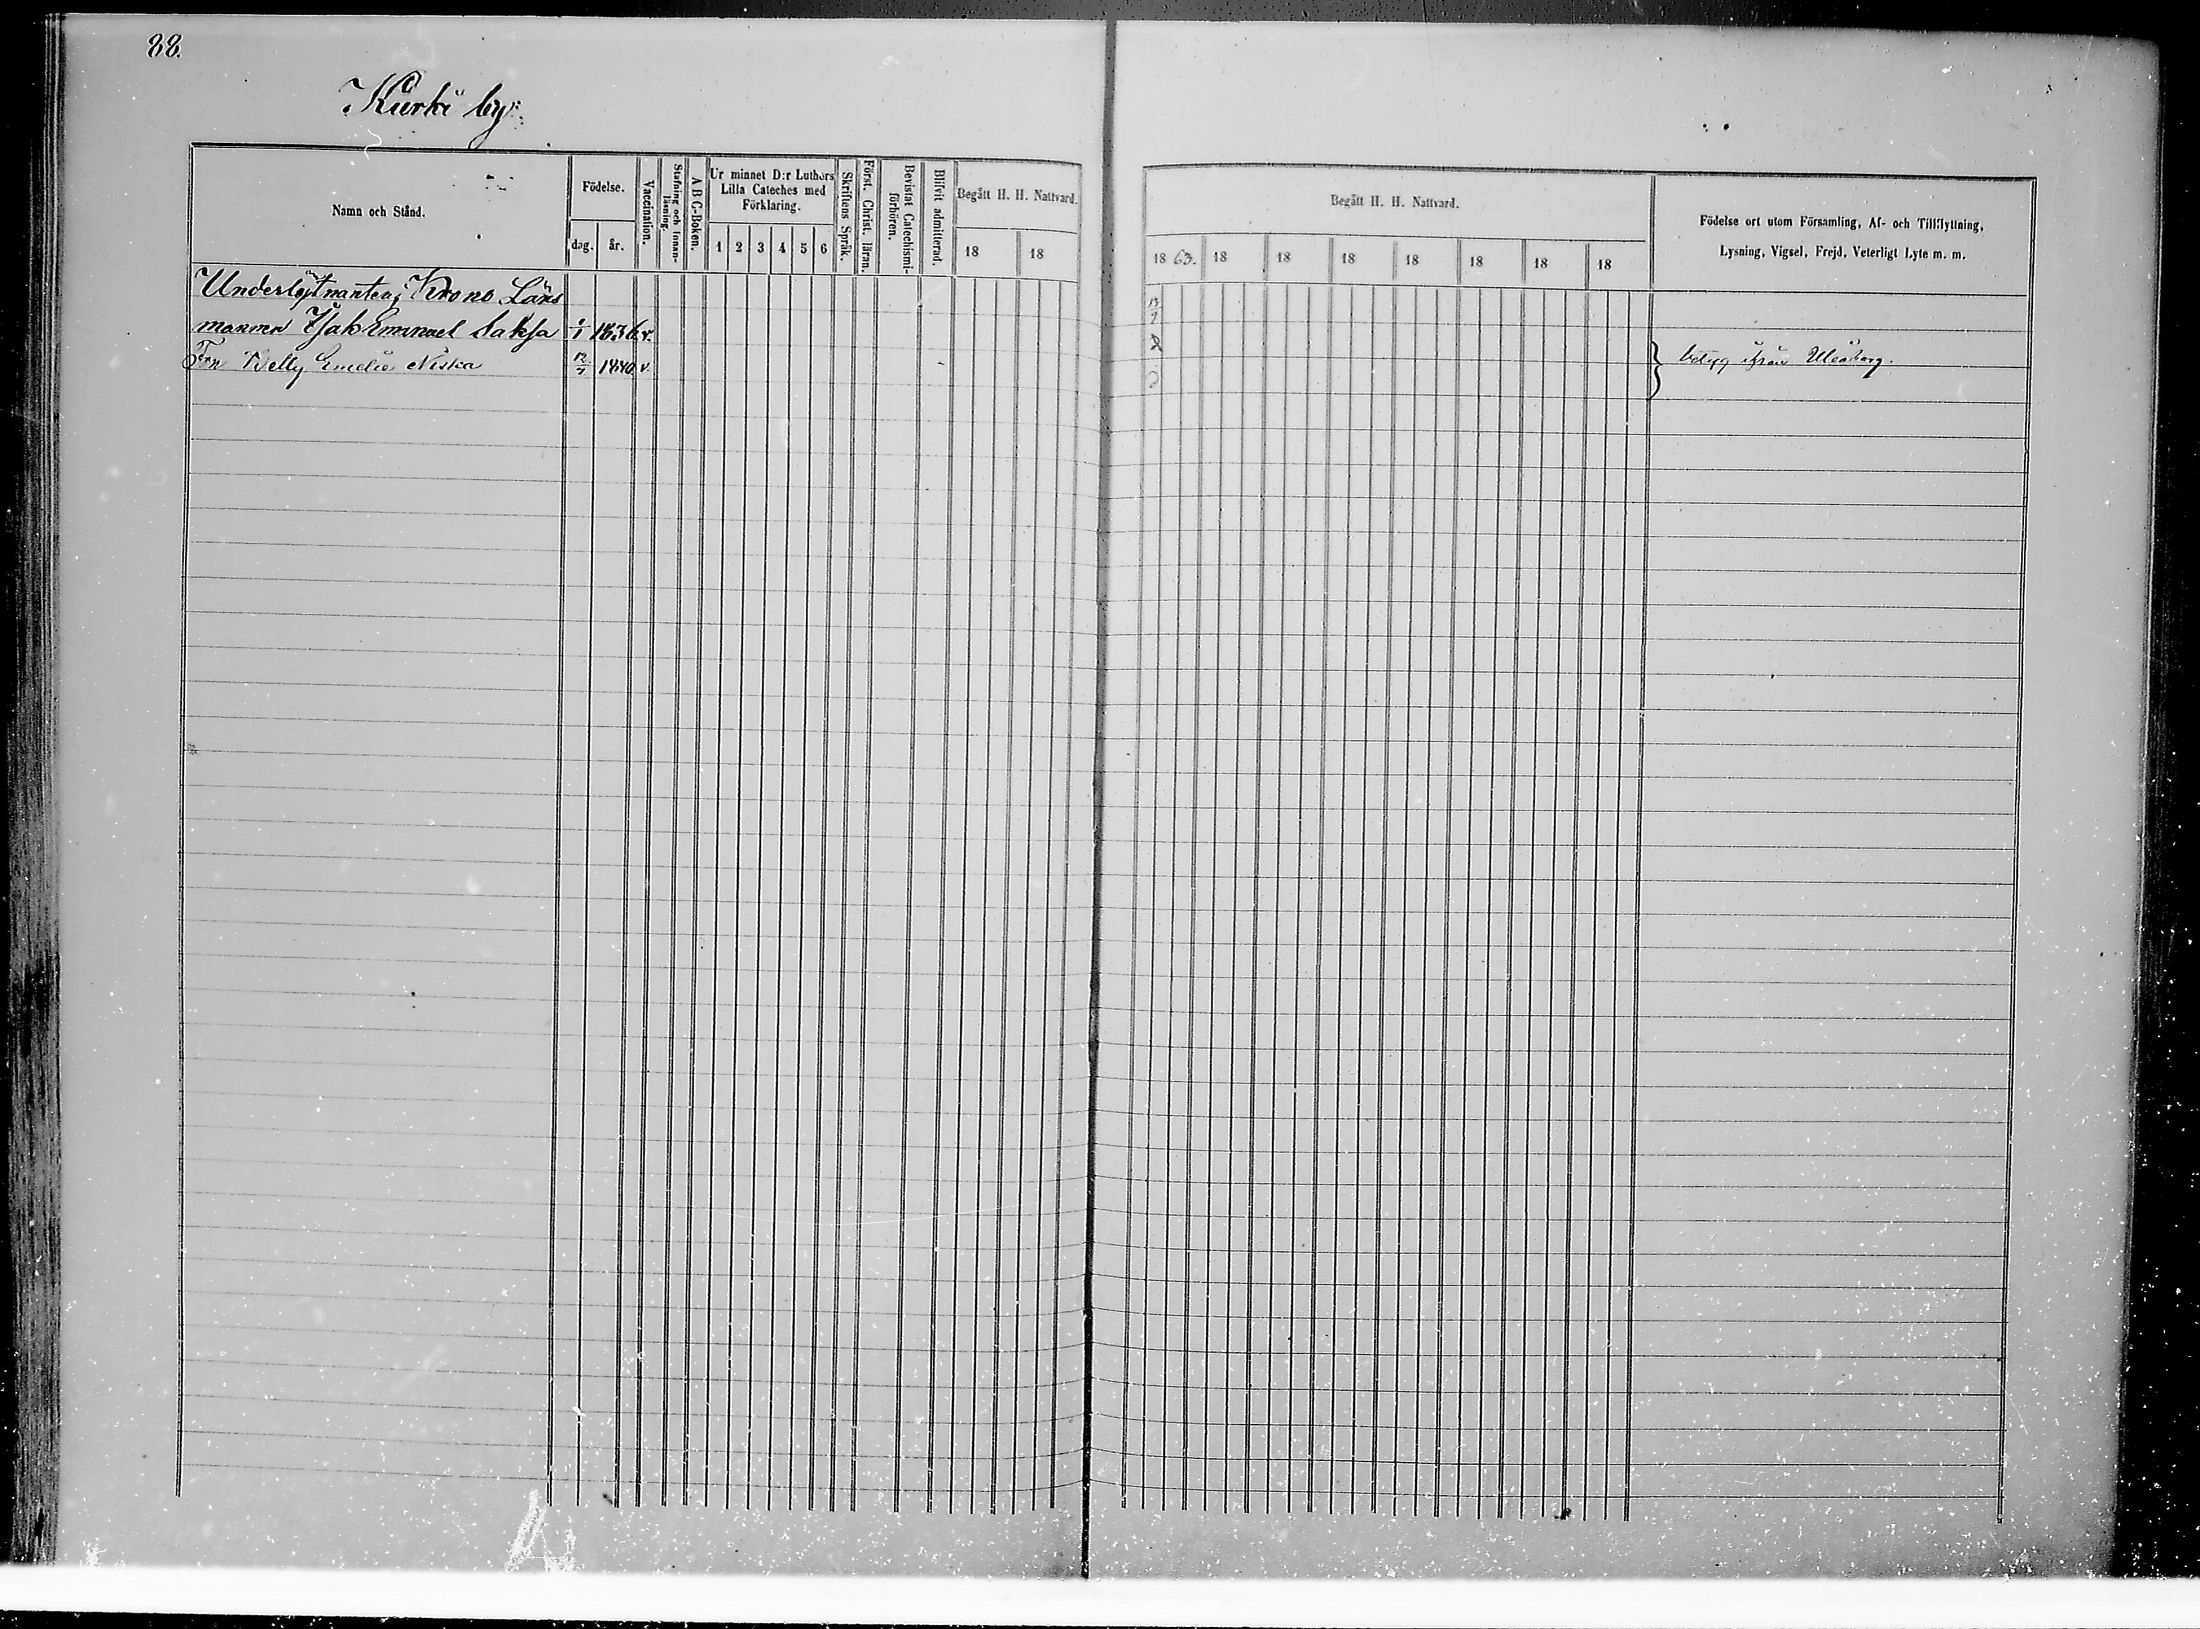 88.
Kurki by:
Namn och Stånd.
Födelse.
dag.
år.
Vaccination.
Stafning och Innan-
läsning.
A B C-Boken.
Ur minnet D:r Luthers
Lilla Cateches med
Förklaring.
1 2 3 4 5 6
Skriftens Språk.
Först. Christ. läran.
Bevistat Catechismi-
förhören.
Blifvit admitterad.
Begått H. H. Nattvard.
18 18
Begått H. H. Nattvard.
18 63. 18 18 18 18 18 18 18
Födelse ort utom Församling, Af- och Tillflyttning,
Lysning, Vigsel, Frejd, Veterligt Lyte m. m.
Underlöjtnanten, Krono Läns
mannen Isak Emanuel Saksa 1836 v.
Fru Emelie Niska 12/7 1840 v.
ifrån Uleåborg.